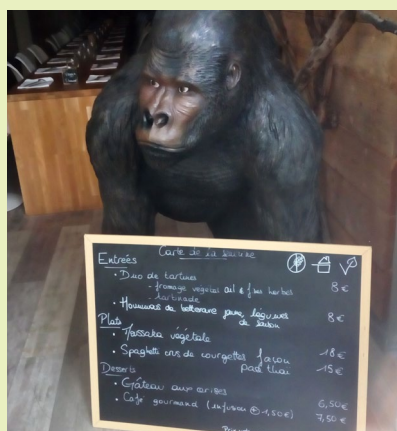 Carte de la semaine
Entrées
• Duo de tartines
- fromage végétal ail & fines herbes 8€
- tartinade
• Houmous de betterave jaune, légumes de saison 8€
Plats
• Moussaka végétale 18€
• Spaghetti crus de courgettes façon pad thaï 15€
Desserts
• Gâteau aux cerises 6,50€
• Café gourmand (infusion + 1,50€) 7,50€